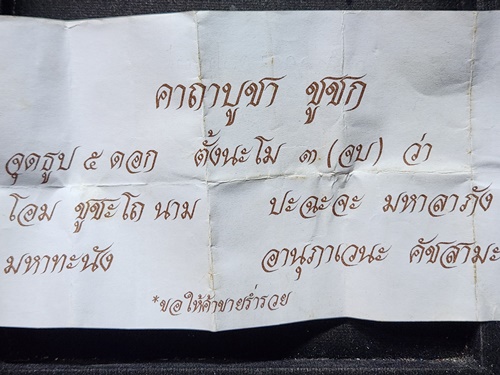 คาถาบูชา ชูชก
จุดธูป ๕ ดอก ตั้งนะโม ๓ (จบ) ว่า
โอม ชูชะโถ นาม ปะฉะจะ มหาลาภัง
มหาทะนัง อานุภาเวนะ คัชสามะ
*ขอให้ค้าขายร่ำรวย